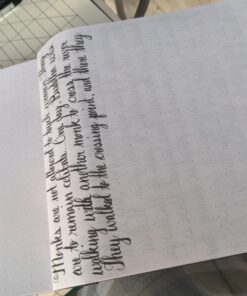 "Monks are not allowed to touch women. They
are to remain celibate. One day, Buddha was
walking with another monk to cross the river.
They walked to the crossing point, and there they